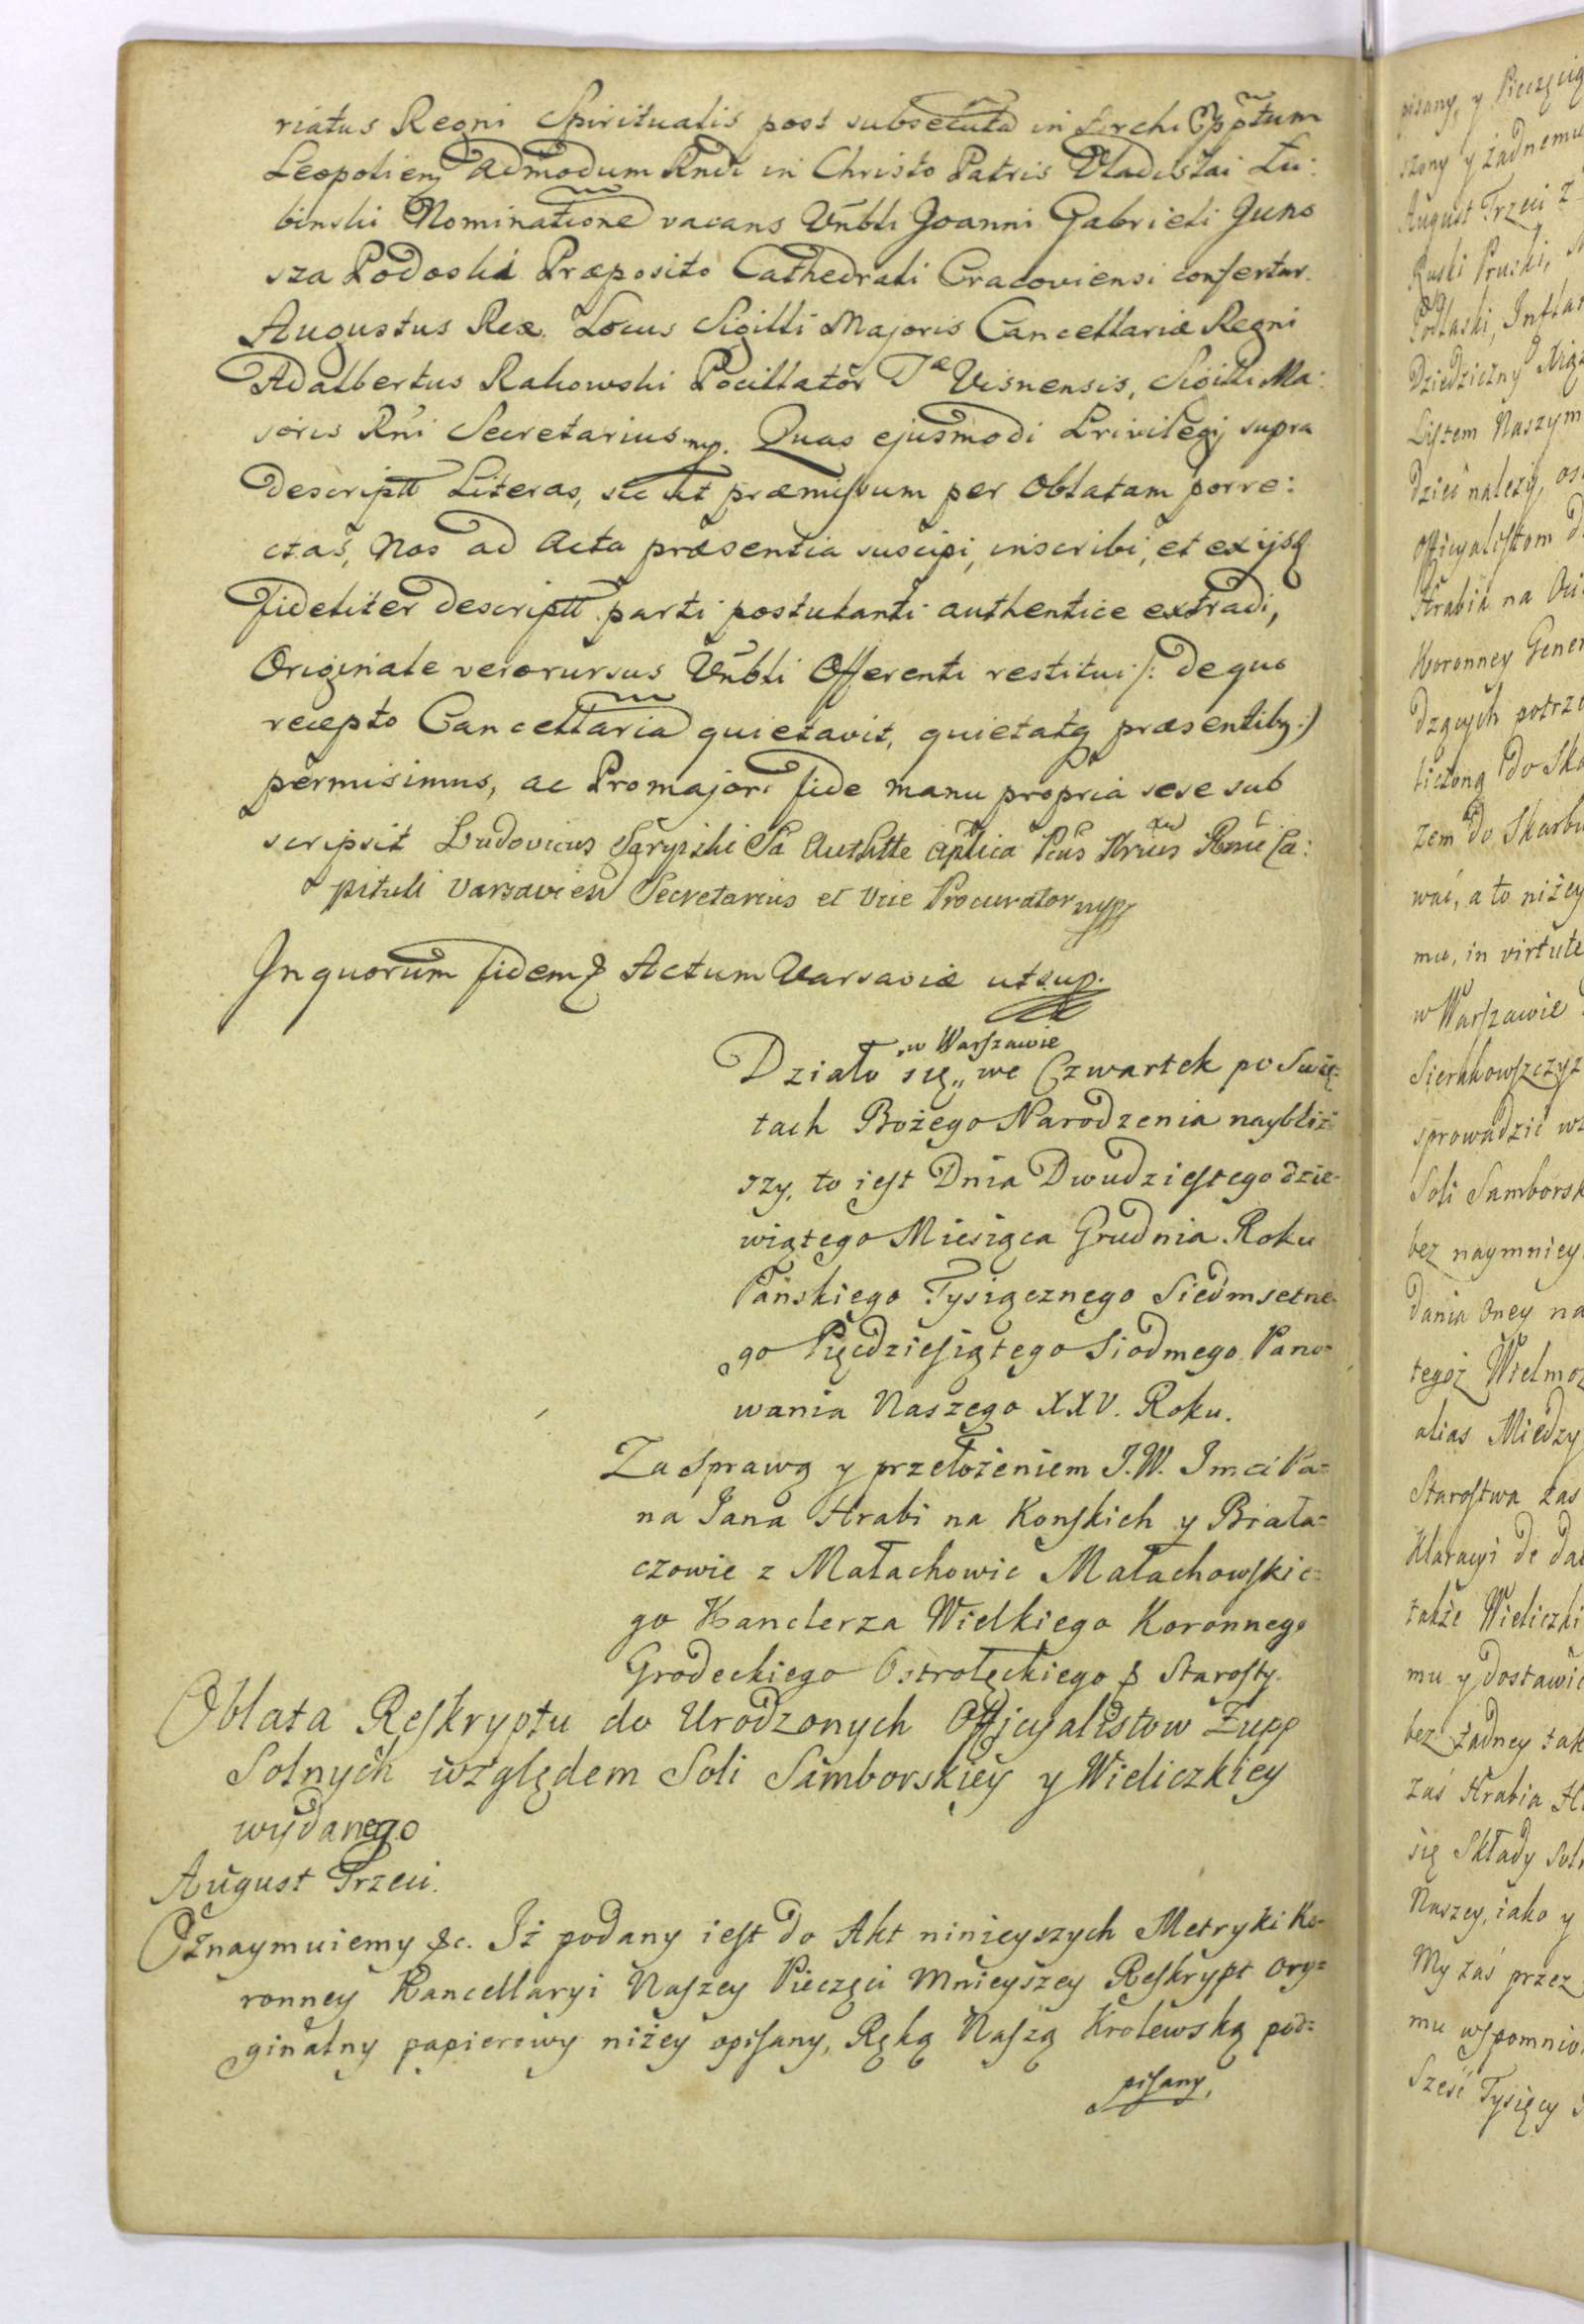 riatus Regni Spiritualis post subsecuta in Archi Epptum
Leopolien Admodum Rndi in Christo Patris Vladislai Łu:
binski Nominatione vacans Vnbli Joanni Gabrieli Juno
sza Podoski Præposito Cathedrali Cracoviensi confertur.
Augustus Rex. Locus Sigilli Majoris Cancellariæ Regni
Adalbertus Rakowski Pocillator Træ Visnensis, Sigilli Ma:
joris Rni Secretarius mp. Quas ejusmodi Privilegij supra
descriptt Literas, sic ut præmissum per Oblatam porre:
ctas, Nos ad Acta præsentia suscipi, inscribi, et ex ijsq
fideliter descriptt parti postulanti authentice extradi,
Originale vero rursus Vnbli Offerenti restitui /: de quo
recepto Cancellaria quietavit, quietatq præsentibq :)
permisimus, ac Pro majori fide manu propria sese sub
scripsit Ludovicus Sa Authtte Aplica
pituli Varsavien Secretarius et Vice Procurator mpp
In quorum fidem Actum Varsaviæ ut sup.
w Warszawie
Działo się „ we Czwartek po Swię-
tach Bożego Narodzenia naybliż-
szy, to iest Dnia Dwudziestego dzie-
wiątego Miesiąca Grudnia Roku
Pańskiego Tysiącznego Siedmsetne-
go Pięcdziesiątego Siodmego Pano-
wania Naszego XXV. Roku.
Za Sprawą y przełożeniem J.W. Jmci Pa=
na Jana Hrabi na Konskich y Biała=
czowie z Małachowic Małachowskie=
go Kanclerza Wielkiego Koronnego
Grodeckiego Ostrołęckiego & Starosty.
Oblata Reskryptu do Urodzonych Officyalistow Zupp
Solnych względem Soli Samborskiey y Wieliczkiey
wydanego
August Trzeci.
Oznaymuiemy &c. Iż podany iest do Akt ninieyszych Metryki Ko-
ronney Kancellaryi Naszey Pieczęci Mnieyszey Reskrypt Ory=
ginalny papierowy niżey opisany, Ręką Naszą Krolewską pod=
pisany,
pisany, y Pieczęcią
szony y żadnemu
August Trzeci z
Ruski Pruski,
Podlaski, Inflan
Dziedziczny Xiąż
Listem Naszym
dzieć należy, os
Officyalistom d
Hrabia na
Koronney Gener
dzących potrze
liczoną do Ska
zem do Skarbu
wać, a to niżey
mu, in virtute
w Warszawie
Sierakowszczyz
sprowadzić wz
Soli Samborsk
bez naymniey
dania Oney na
tegoż Wielmoz
alias Miedzy
Starostwa zas
Klaracyi de da
także Wieliczki
mu y dostawić
bez żadney tak
zaś Hrabia
się Składy Soln
Naszey, iako y
My zaś przez
mu wspomnio
Sześć Tysięcy